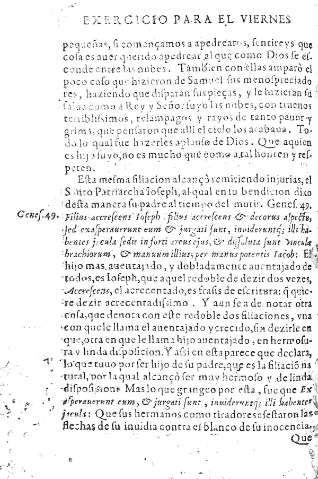 EXERCICIO PARA EL VIERNES
pequeñas, si començamos a apedrearos, sentireys que
cosa es auer querido apedrear al que como Dios se es-
conde entre las nubes. Tambien con ellas amparò el
poco caso que hizieron de Samuel sus menospreciado
res, haziendo que disparan sus pieças, y le hizieran
salua como a Rey y Señor suyo las nubes, con truenos
terribilissimos, relampagos y rayos de tanto pauor y
grima, que pensaron que alli el cielo los acabaua. To-
do lo qual fue hazerles aplauso de Dios. Que a quien
es hijo suyo, no es mucho que como a tal honren y res-
peten.
Esta mesma filiacion alcançò remitiendo injurias, el
Santo Patriarcha Ioseph, al qual en to bendicion dixo
desta manera su padre al tiempo del morir. Genes. 49.
Genes. 49.
Filius accrescens Ioseph, filius accrescens & decorus aspectu,
sed exasperauerunt eum & jurgati sunt, inuideruntq; illi ha-
bentes jacula sedit in forti arcus ejus, & dissoluta sunt vincula
brachiorum, & manuum illius, per manus potentis Iacob: El
hijo mas auentajado, y dobladamente auentajado de
todos, es Ioseph, que aquel redoble de dezir dos vezes,
Accrescens, el acrecentado, es frasis de escritura: q̃ quie-
re dezir acrecentadissimo. Y aun sea de notar otra
cosa, que denota con este redoble dos filiaciones, vna
con que le llama el auentajado y crecido, sin dezirle en
que, otra en que le llama hijo auentajado, en hermosu-
ra y linda disposicion. Y assi en esta parece que declara,
lo que tuuo por ser hijo de su padre, que es la filiaciō na
tural, por la qual alcançò ser muy hermoso y de linda
disposicion. Mas lo que grangeo por esta, fue que Ex
asperauerunt eum, & jurgati sunt, inuideruntq; illi habentes
jacula: Que sus hermanos como tiradores assestaron las
flechas de su inuidia contra el blanco de su inocencia.
Que